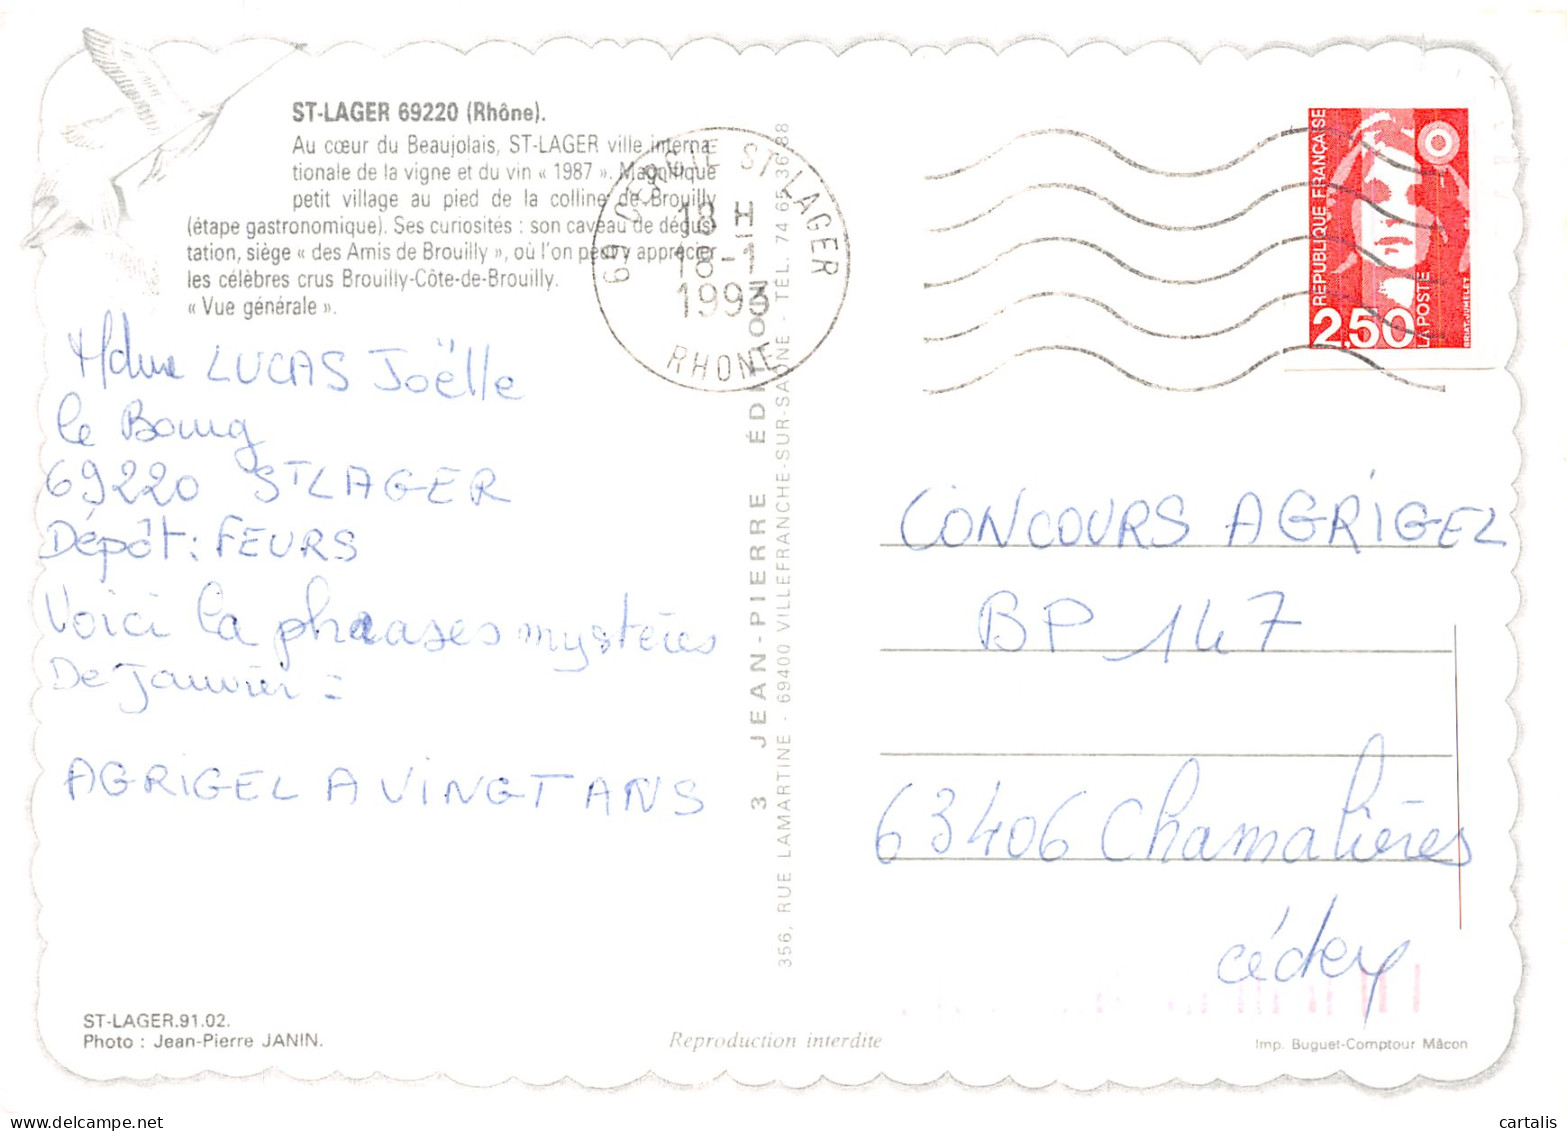 ST-LAGER 69220 (Rhône).
Au cœur du Beaujolais, ST-LAGER ville interna
tionale de la vigne et du vin « 1987 ». Magnifique
petit village au pied de la colline de Brouilly
(étape gastronomique). Ses curiosités : son caveau de dégus
tation, siège « des Amis de Brouilly », où l'on peut y apprécier
les célèbres crus Brouilly-Côte-de-Brouilly.
« Vue générale ».
Mdme LUCAS Joëlle
le Bourg
69220 ST LAGER
Dépôt : FEURS
Voici la phrases mystères
De Janvier =
AGRIGEL A VINGT ANS
ST-LAGER.91.02.
Photo : Jean-Pierre JANIN.
69 ST LAGER
18 H
18-1
1993
RHONE
3 JEAN-PIERRE ÉDITION
356, RUE LAMARTINE - 69400 VILLEFRANCHE-SUR-SAONE - TEL. 74 65 36 88
Reproduction interdite
REPUBLIQUE FRANÇAISE
2,50
LA POSTE
BRIAT-JUMELET
CONCOURS AGRIGEL
BP 147
63406 Chamalières
cédex
Imp. Buguet-Comptour Mâcon
cartalis